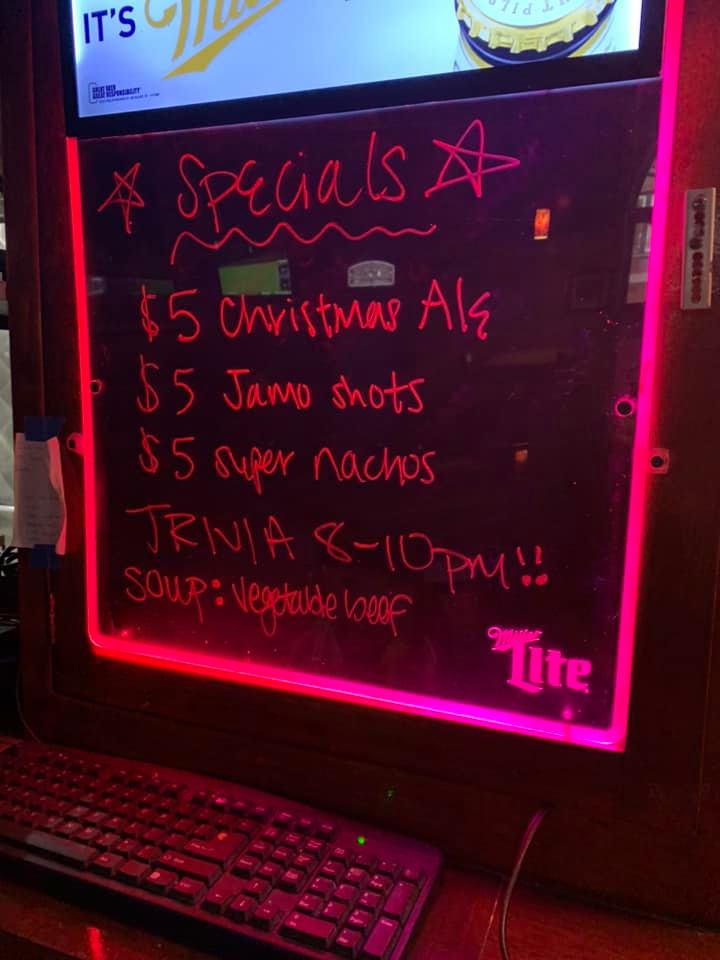 IT'S Miller
GREAT BEER
GREAT RESPONSIBILITY
Specials
$5 Christmas Ale
$5 Jamo shots
$5 super nachos
TRIVIA 8-10pm!!
SOUP: vegetable beef
Miller
Lite